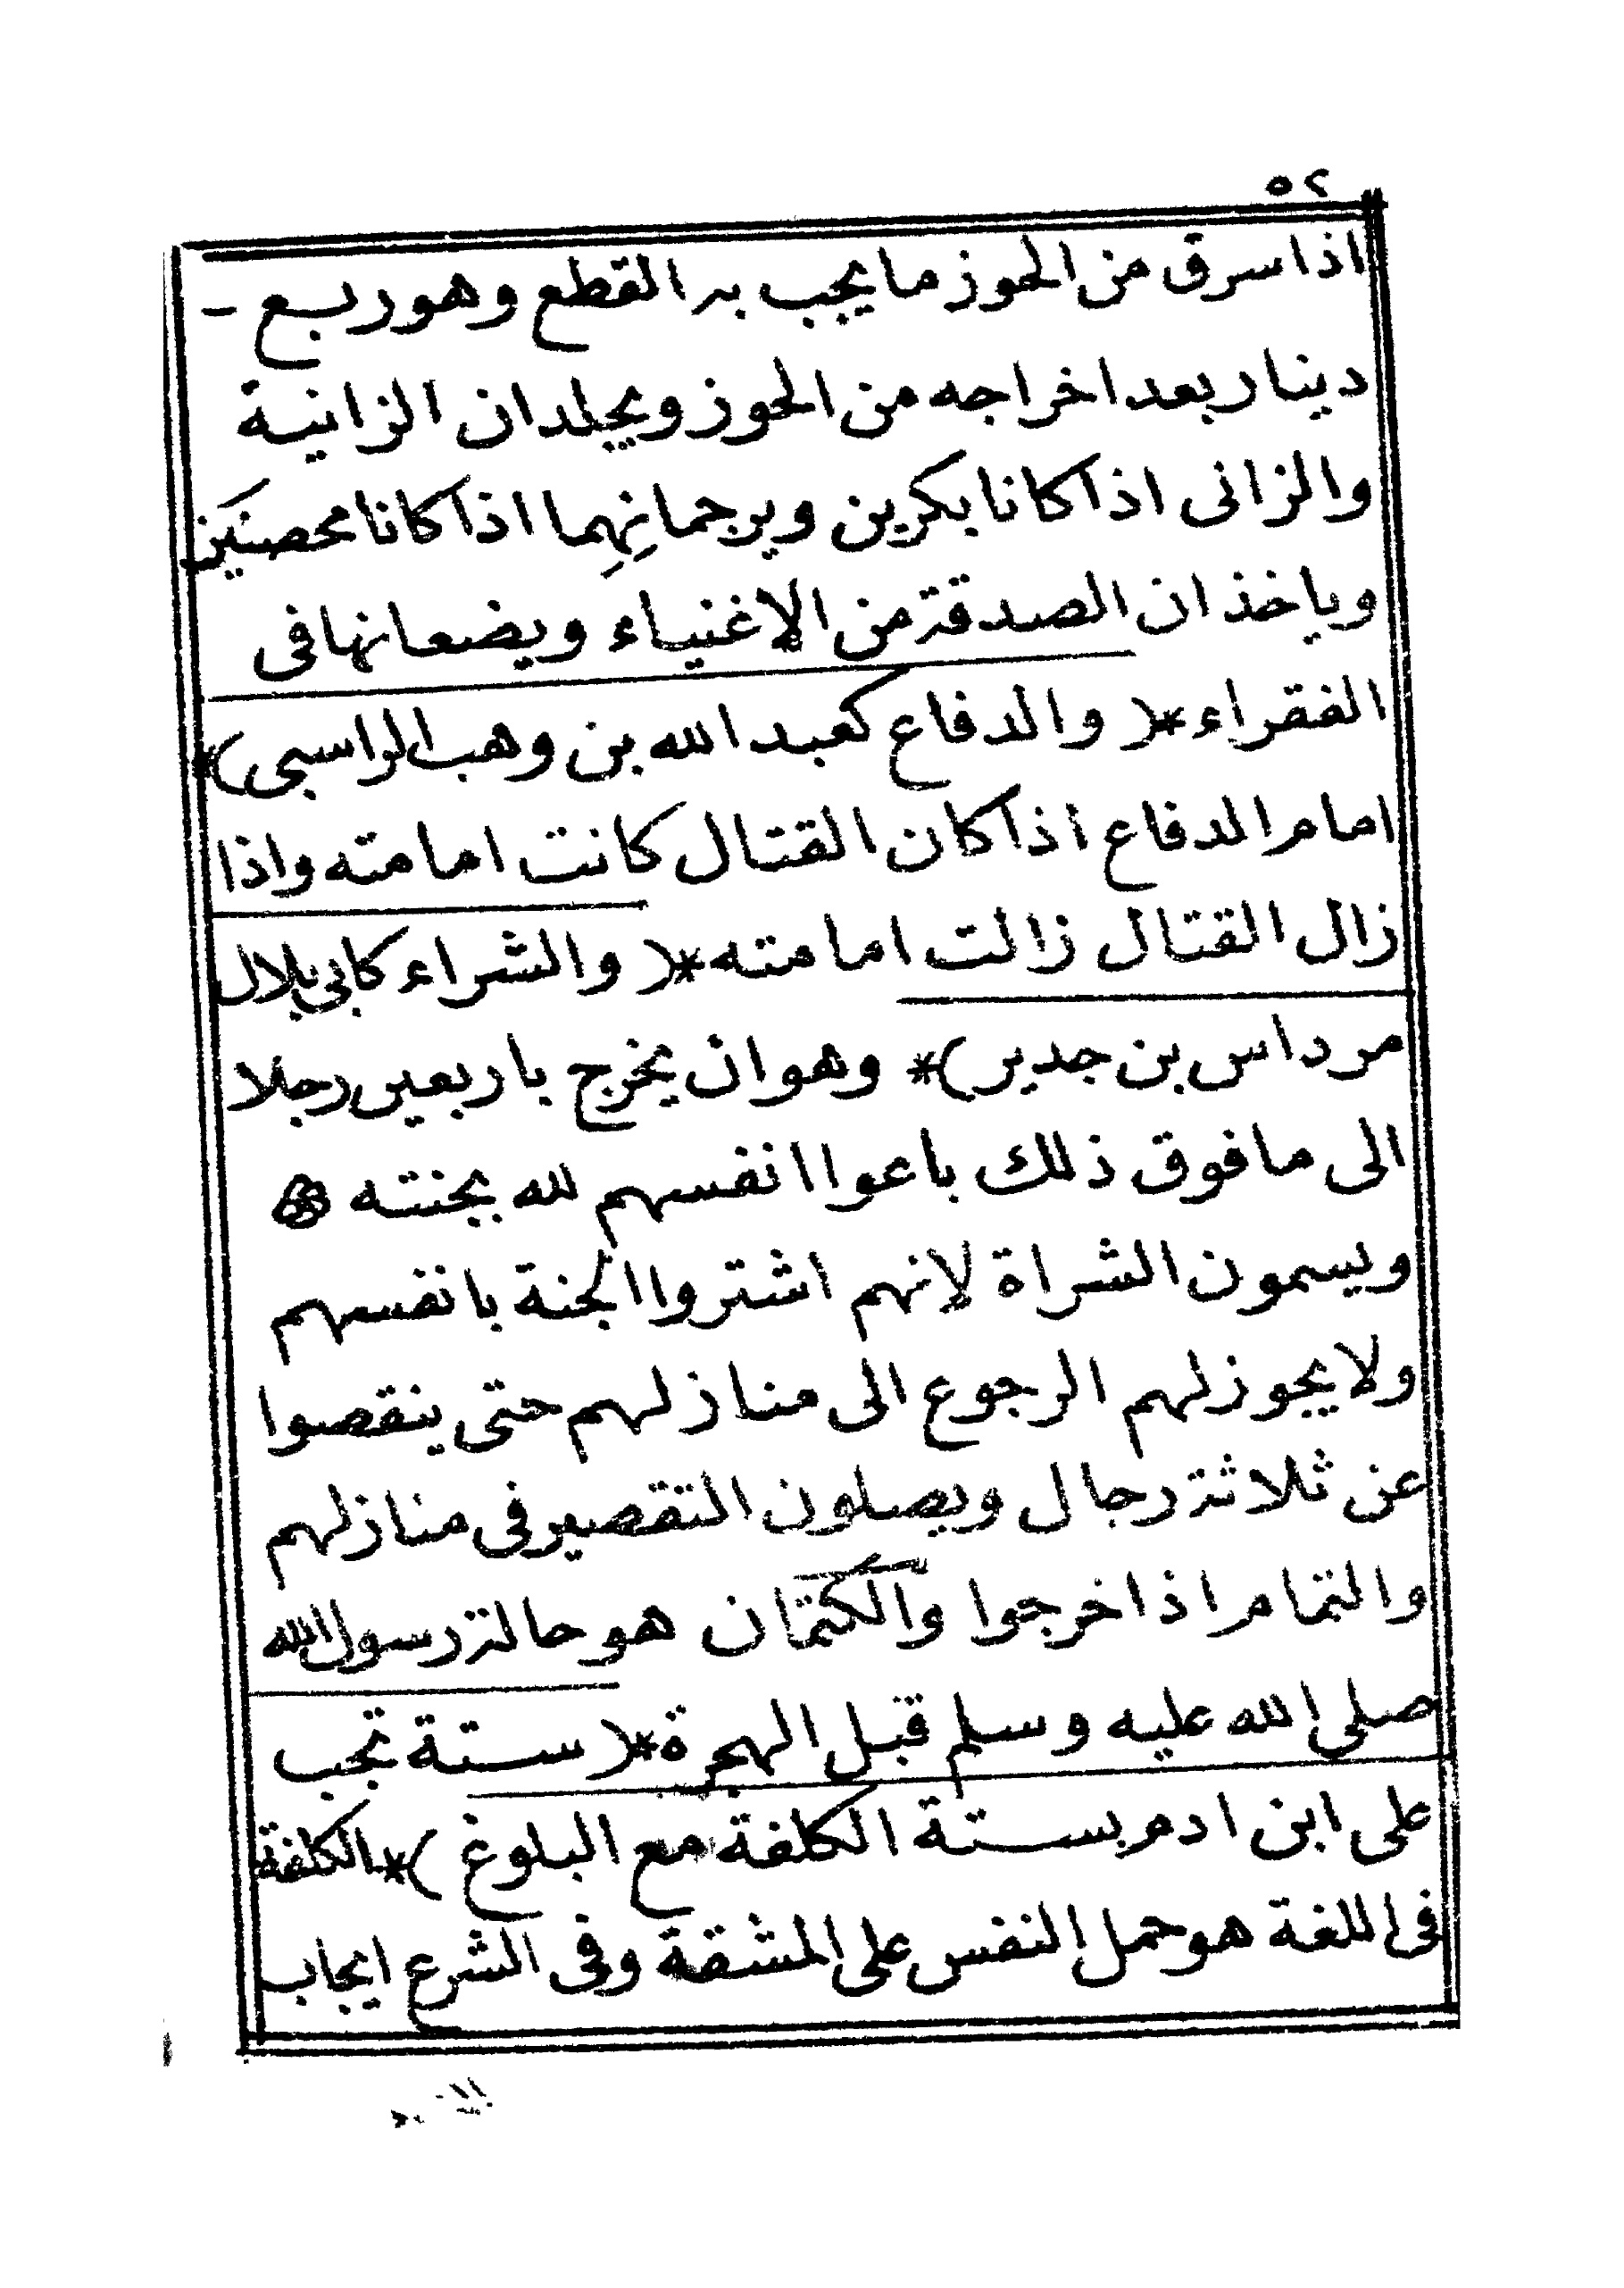 ٥٢
اذا سرق من الحوز ما يجب به القطع وهو ربع -
دينار بعد اخراجه من الحوز ويجلدان الزانية
والزانى اذا كانا بكرين ويرجمانهما اذا كانا محصنين
وياخذان الصدقة من الاغنياء ويضعانها فى
الفقراء *( والدفاع كعبد الله بن وهب الراسبى )*
امام الدفاع اذا كان القتال كانت امامته واذا
زال القتال زالت امامته *( والشراء كابى بلال
مرداس بن جدير )* وهو ان يخرج باربعين رجلا
الى ما فوق ذلك باعوا انفسهم لله بجنته
ويسمون الشراة لانهم اشتروا الجنة بانفسهم
ولا يجوز لهم الرجوع الى منازلهم حتى ينقصوا
عن ثلاثة رجال ويصلون التقصير فى منازلهم
والتمام اذا خرجوا والكتمان هو حالة رسول الله
صلى الله عليه وسلم قبل الهجرة *( ستة تجب
على ابن ادم بستة الكلفة مع البلوغ )* الكلفة
فى اللغة هو حمل النفس على المشقة وفى الشرع ايجاب